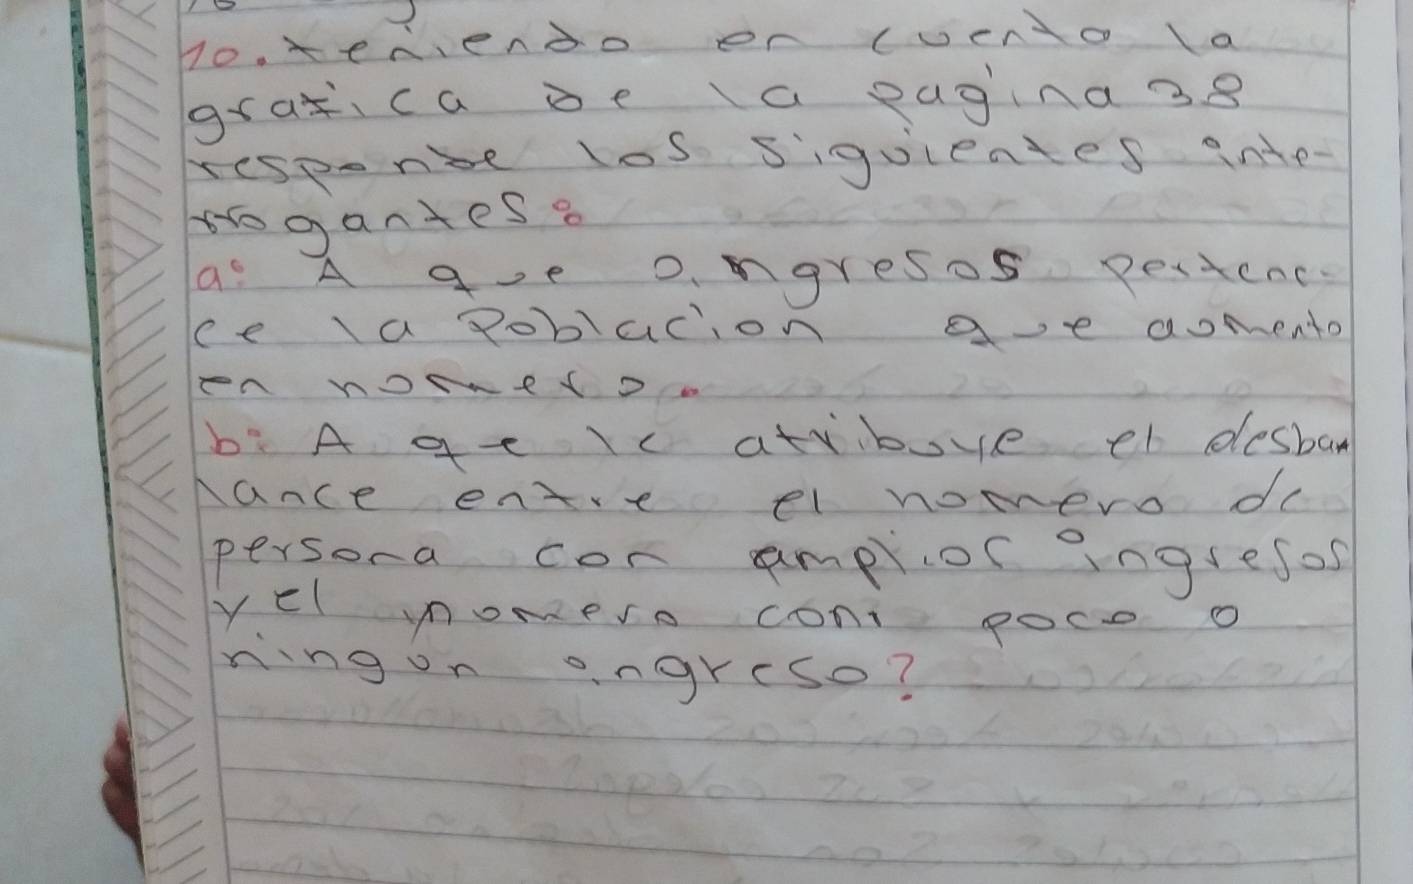 10. teniendo en cuenta la
grafica de la pagina 38
responde los siguientes inte-
rrogantes:
a: A que ingresos pertene-
ce la Poblacion que aumento
en numero.
b: A que le atribuye el desba
lance entre el numero de
persona con amplios ingresos
y el numero con poco o
ningun ingreso?